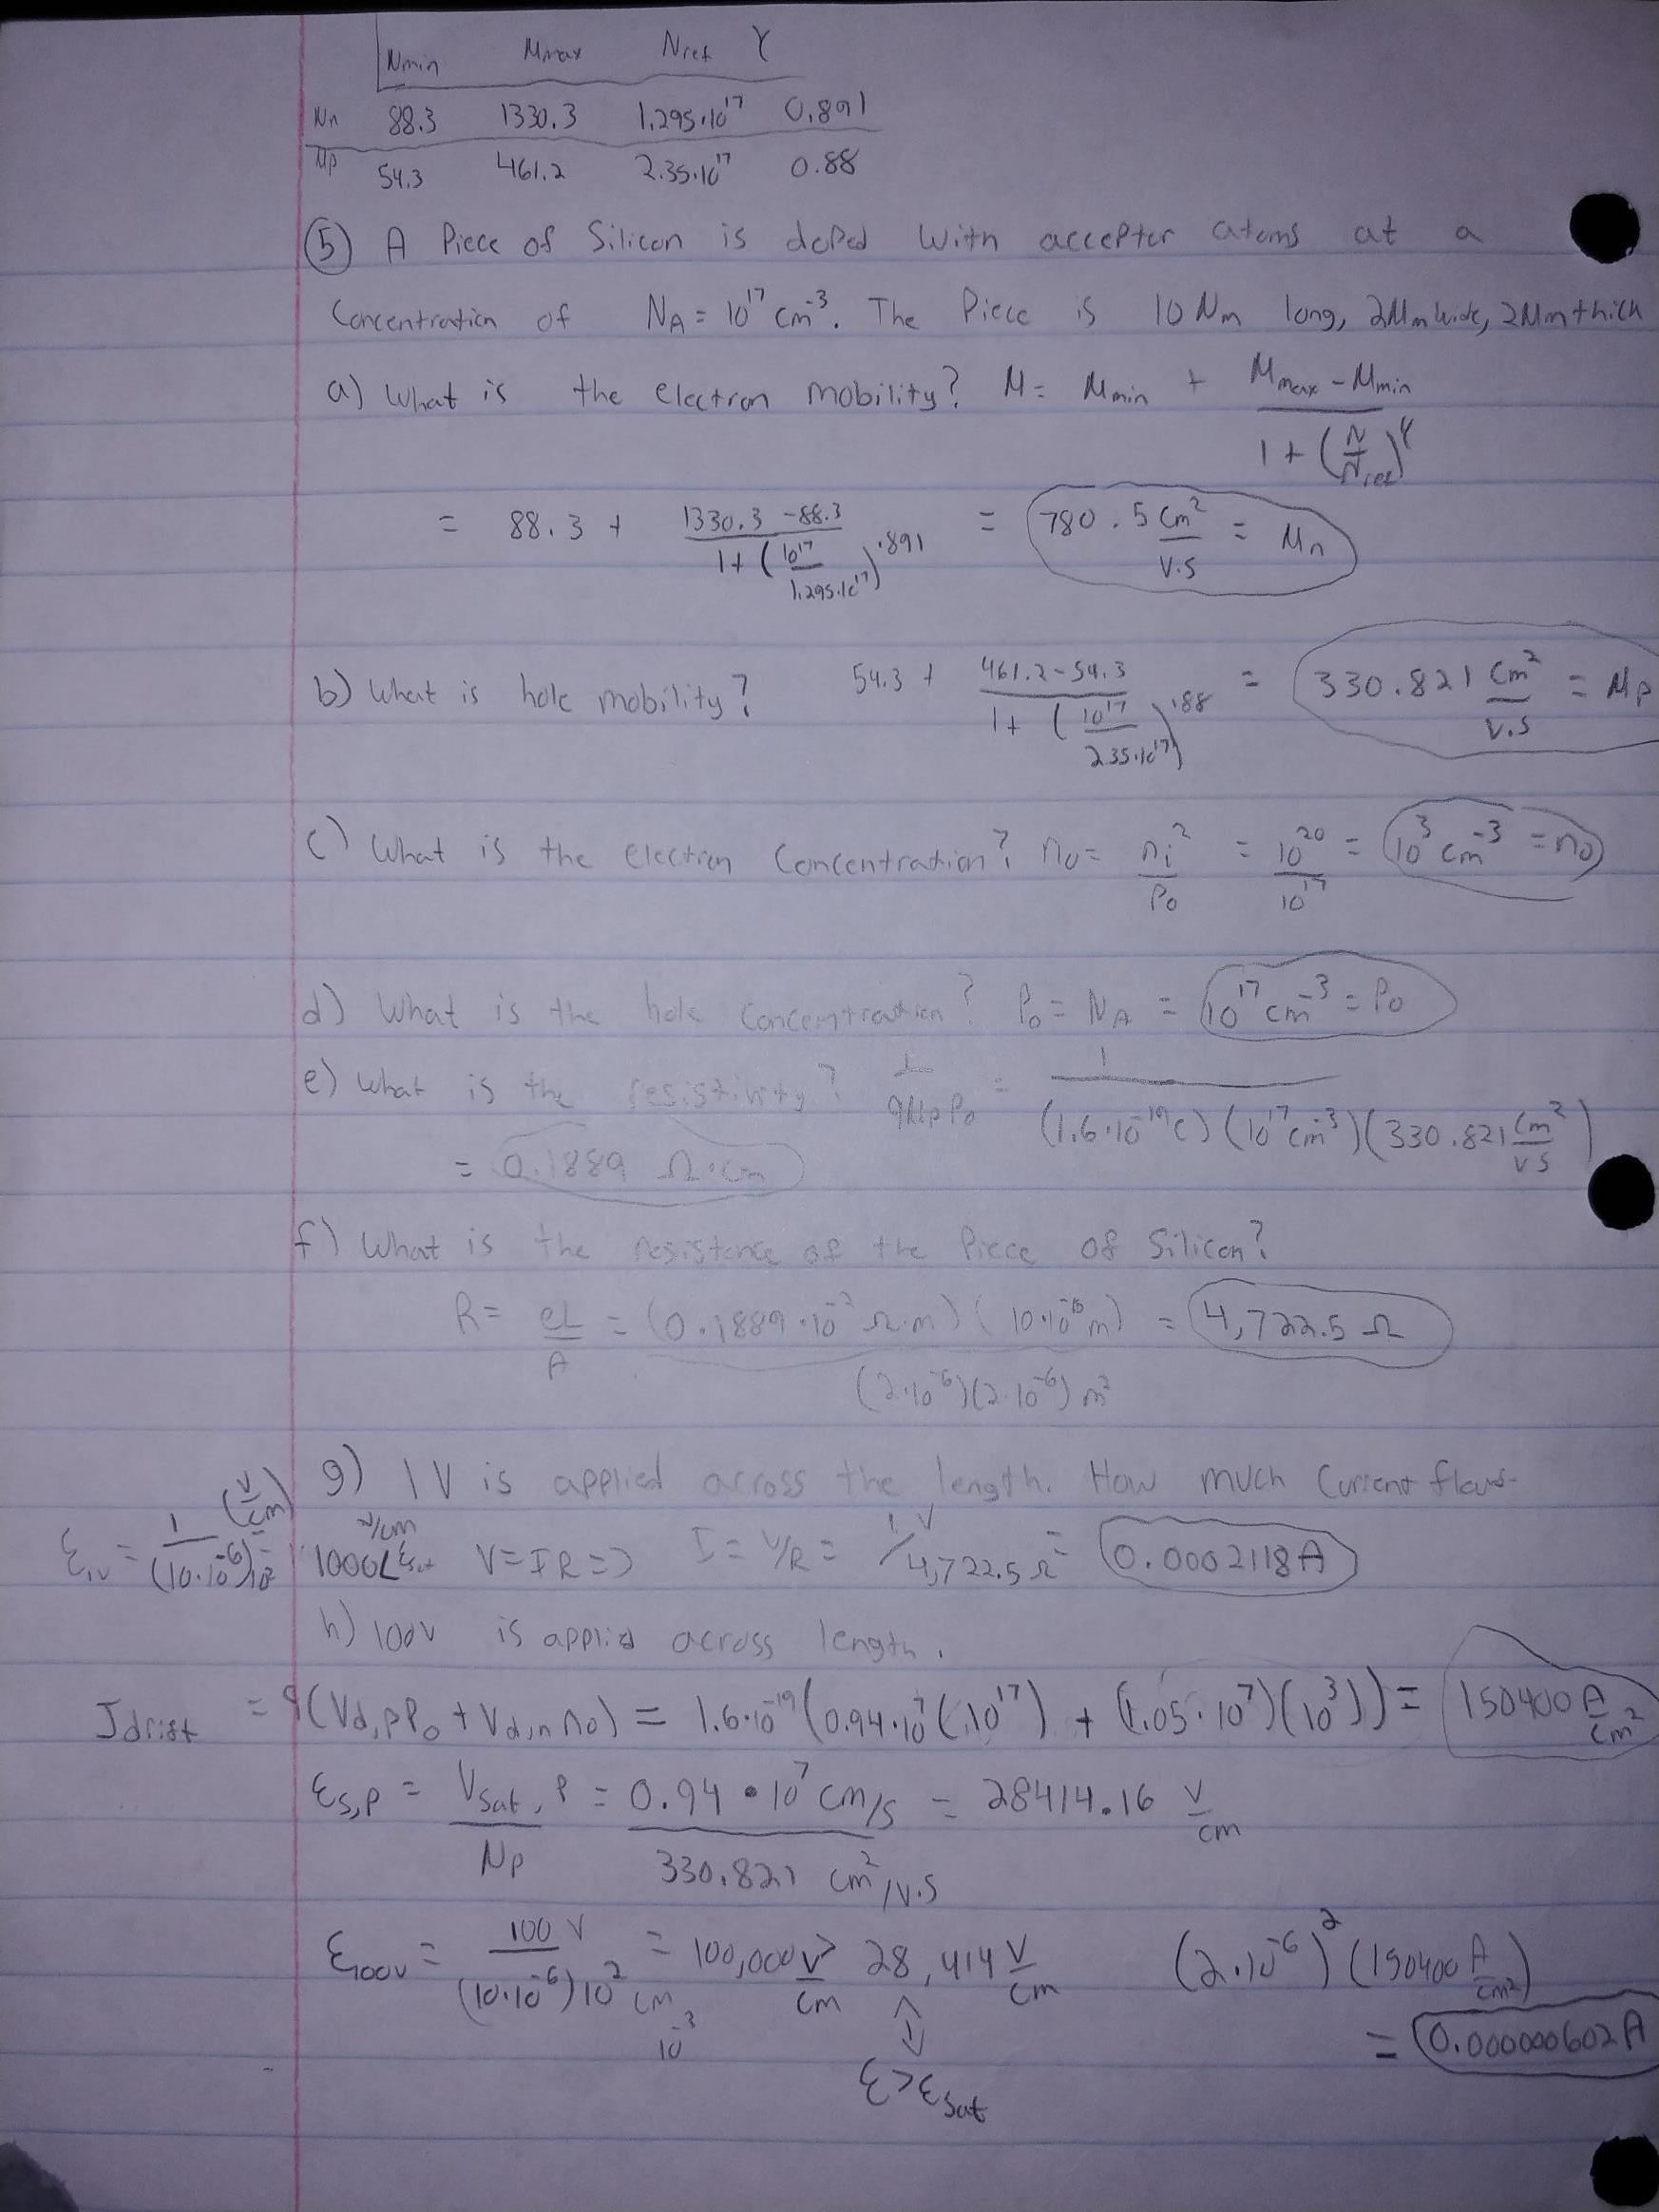 μmin μmax Nref γ
μn 88.3 1330.3 1.295·10^17 0.891
μp 54.3 461.2 2.35·10^17 0.88
(5) A Piece of Silicon is doped with acceptor atoms at a
Concentration of N_A = 10^17 cm^-3. The Piece is 10 μm long, 2μm wide, 2μm thick
a) What is the electron mobility? μ = μmin + (μmax - μmin) / (1 + (N/Nref)^γ)
= 88.3 + (1330.3 - 88.3) / (1 + (10^17 / 1.295·10^17)^.891) = 780.5 cm^2/V·s = μn
b) What is hole mobility? 54.3 + (461.2 - 54.3) / (1 + (10^17 / 2.35·10^17)^.88) = 330.821 cm^2/V·s = μp
c) What is the electron Concentration? n0 = ni^2/P0 = 10^20/10^17 = 10^3 cm^-3 = n0
d) What is the hole Concentration? P0 = N_A = 10^17 cm^-3 = P0
e) What is the resistivity? 1/(qμpP0) = 1 / ((1.6·10^-19 C)(10^17 cm^-3)(330.821 cm^2/VS))
= 0.1889 Ω·cm
f) What is the resistance of the Piece of Silicon?
R = ρL/A = (0.1889·10^-2 Ω·m)(10·10^-6 m) / ((2·10^-6)(2·10^-6) m^2) = 4,722.5 Ω
g) 1V is applied across the length. How much Current flows
ε1V = 1/((10·10^-6)10^2) (V/cm) = 1000 V/cm < εsat V = IR => I = V/R = 1V/4,722.5 Ω = 0.0002118A
h) 100V is applied across length.
Jdrift = q(Vd,pP0 + Vd,n n0) = 1.6·10^-19(0.94·10^7(10^17) + (1.05·10^7)(10^3)) = 150400 A/cm^2
εs,p = Vsat,p/μp = 0.94·10^7 cm/s / 330.821 cm^2/V·S = 28414.16 V/cm
ε100V = 100 V / ((10·10^-6)10^2 cm) = 100,000 V/cm > 28,414 V/cm (2·10^-6)^2 (150400 A/cm^2)
10^-3 ⇕ = 0.000000602A
ε > εsat